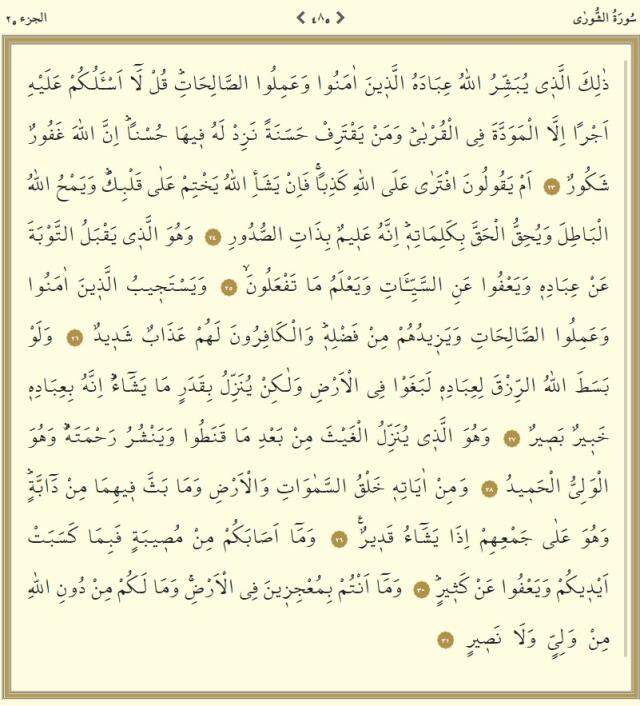 سُورَةُ الشُّورٰى
٤٨٥
الجزء ٢٥
ذٰلِكَ الَّذ۪ي يُبَشِّرُ اللّٰهُ عِبَادَهُ الَّذ۪ينَ اٰمَنُوا وَعَمِلُوا الصَّالِحَاتِۜ قُلْ لَٓا اَسْـَٔلُكُمْ عَلَيْهِ
اَجْرًا اِلَّا الْمَوَدَّةَ فِي الْقُرْبٰىۜ وَمَنْ يَقْتَرِفْ حَسَنَةً نَزِدْ لَهُ ف۪يهَا حُسْنًاۜ اِنَّ اللّٰهَ غَفُورٌ
شَكُورٌ ٢٣ اَمْ يَقُولُونَ افْتَرٰى عَلَى اللّٰهِ كَذِبًاۚ فَاِنْ يَشَأِ اللّٰهُ يَخْتِمْ عَلٰى قَلْبِكَۜ وَيَمْحُ اللّٰهُ
الْبَاطِلَ وَيُحِقُّ الْحَقَّ بِكَلِمَاتِه۪ۜ اِنَّهُ عَل۪يمٌ بِذَاتِ الصُّدُورِ ٢٤ وَهُوَ الَّذ۪ي يَقْبَلُ التَّوْبَةَ
عَنْ عِبَادِه۪ وَيَعْفُوا عَنِ السَّيِّـَٔاتِ وَيَعْلَمُ مَا تَفْعَلُونَۙ ٢٥ وَيَسْتَج۪يبُ الَّذ۪ينَ اٰمَنُوا
وَعَمِلُوا الصَّالِحَاتِ وَيَز۪يدُهُمْ مِنْ فَضْلِه۪ۜ وَالْكَافِرُونَ لَهُمْ عَذَابٌ شَد۪يدٌ ٢٦ وَلَوْ
بَسَطَ اللّٰهُ الرِّزْقَ لِعِبَادِه۪ لَبَغَوْا فِي الْاَرْضِ وَلٰكِنْ يُنَزِّلُ بِقَدَرٍ مَا يَشَٓاءُۜ اِنَّهُ بِعِبَادِه۪
خَب۪يرٌ بَص۪يرٌ ٢٧ وَهُوَ الَّذ۪ي يُنَزِّلُ الْغَيْثَ مِنْ بَعْدِ مَا قَنَطُوا وَيَنْشُرُ رَحْمَتَهُۜ وَهُوَ
الْوَلِيُّ الْحَم۪يدُ ٢٨ وَمِنْ اٰيَاتِه۪ خَلْقُ السَّمٰوَاتِ وَالْاَرْضِ وَمَا بَثَّ ف۪يهِمَا مِنْ دَٓابَّةٍۜ
وَهُوَ عَلٰى جَمْعِهِمْ اِذَا يَشَٓاءُ قَد۪يرٌ۟ ٢٩ وَمَٓا اَصَابَكُمْ مِنْ مُص۪يبَةٍ فَبِمَا كَسَبَتْ
اَيْد۪يكُمْ وَيَعْفُوا عَنْ كَث۪يرٍۜ ٣٠ وَمَٓا اَنْتُمْ بِمُعْجِز۪ينَ فِي الْاَرْضِۚ وَمَا لَكُمْ مِنْ دُونِ اللّٰهِ
مِنْ وَلِيٍّ وَلَا نَص۪يرٍ ٣١